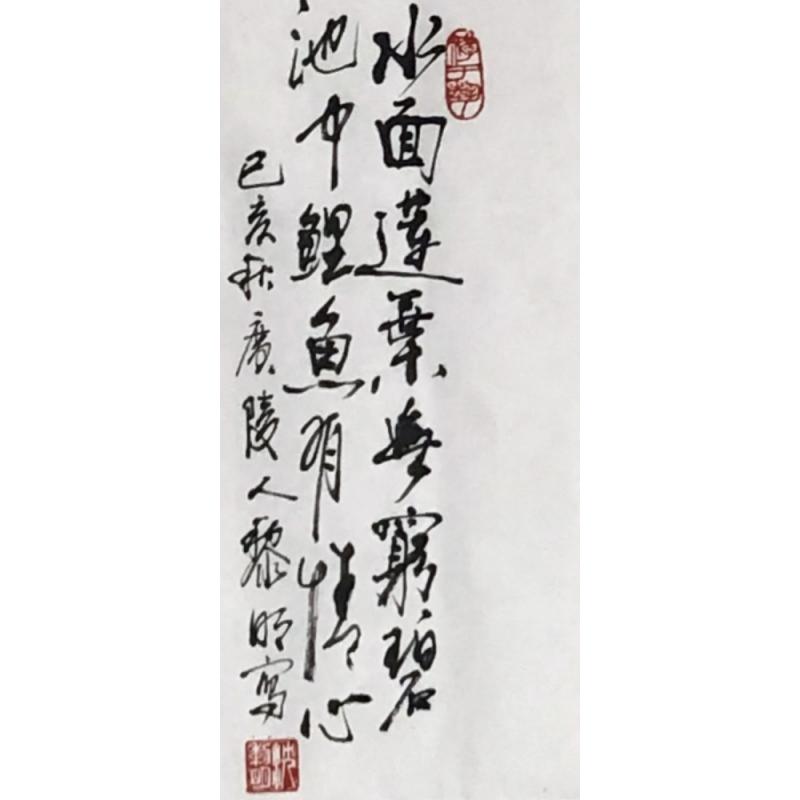 水面蓮葉無窮碧
池中鯉魚有情心
己亥秋廣陵人黎明寫